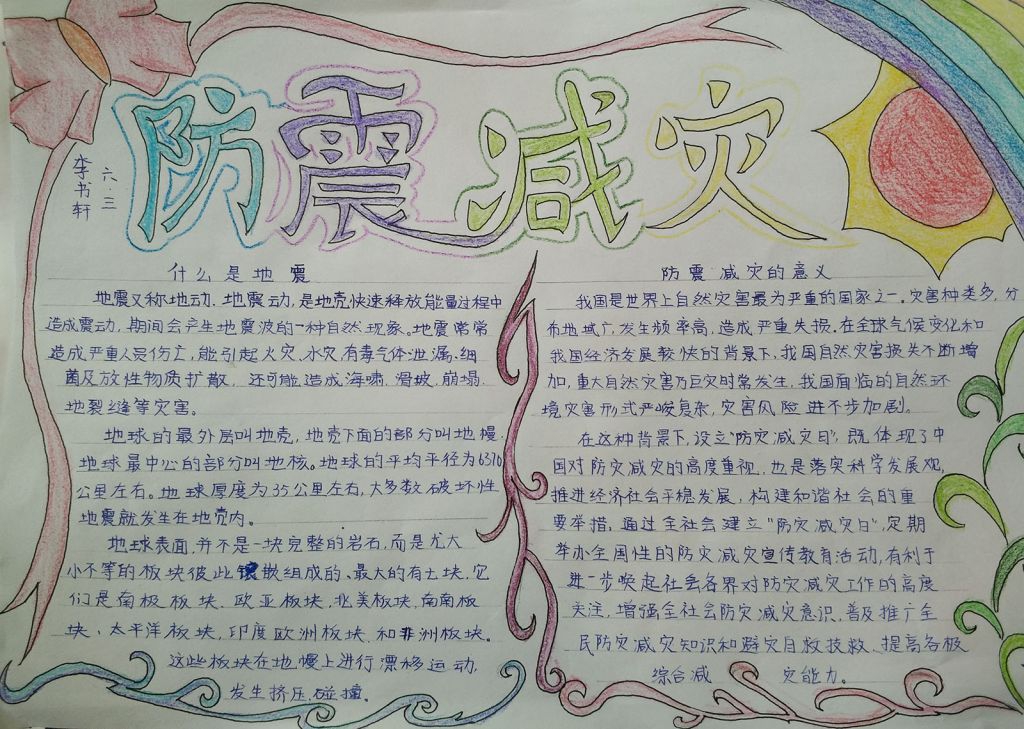 防震减灾
六.三
李书轩
什么是地震
地震又称地动、地震动，是地壳快速释放能量过程中
造成震动，期间会产生地震波的一种自然现象。地震常常
造成严重人员伤亡，能引起火灾、水灾、有毒气体泄漏、细
菌及放性物质扩散，还可能造成海啸、滑坡、崩塌、
地裂缝等灾害。
地球的最外层叫地壳，地壳下面的部分叫地幔，
地球最中心的部分叫地核。地球的平均半径为6370
公里左右。地球厚度为35公里左右，大多数破坏性
地震就发生在地壳内。
地球表面，并不是一块完整的岩石，而是尤大
小不等的板块彼此镶嵌组成的、最大的有七块，它
们是南极板块、欧亚板块、北美板块、南南板
块、太平洋板块，印度欧洲板块和非洲板块。
这些板块在地幔上进行漂移运动，
发生挤压碰撞。
防震减灾的意义
我国是世界上自然灾害最为严重的国家之一。灾害种类多，分
布地域广发生频率高，造成严重失损。在全球气候变化和
我国经济发展较快的背景下，我国自然灾害损失不断增
加，重大自然灾害乃巨灾时常发生，我国面临的自然环
境灾害形式严峻复杂，灾害风险进不步加剧。
在这种背景下，设立"防灾减灾日"，既体现了中
国对防灾减灾的高度重视，也是落实科学发展观，
推进经济社会平稳发展，构建和谐社会的重
要举措，通过全社会建立"防灾减灾日"，定期
举办全国性的防灾减灾宣传教育活动，有利于
进一步唤起社会各界对防灾减灾工作的高度
关注，增强全社会防灾减灾意识，普及推广全
民防灾减灾知识和避灾自救技救、提高各极
综合减 灾能力。